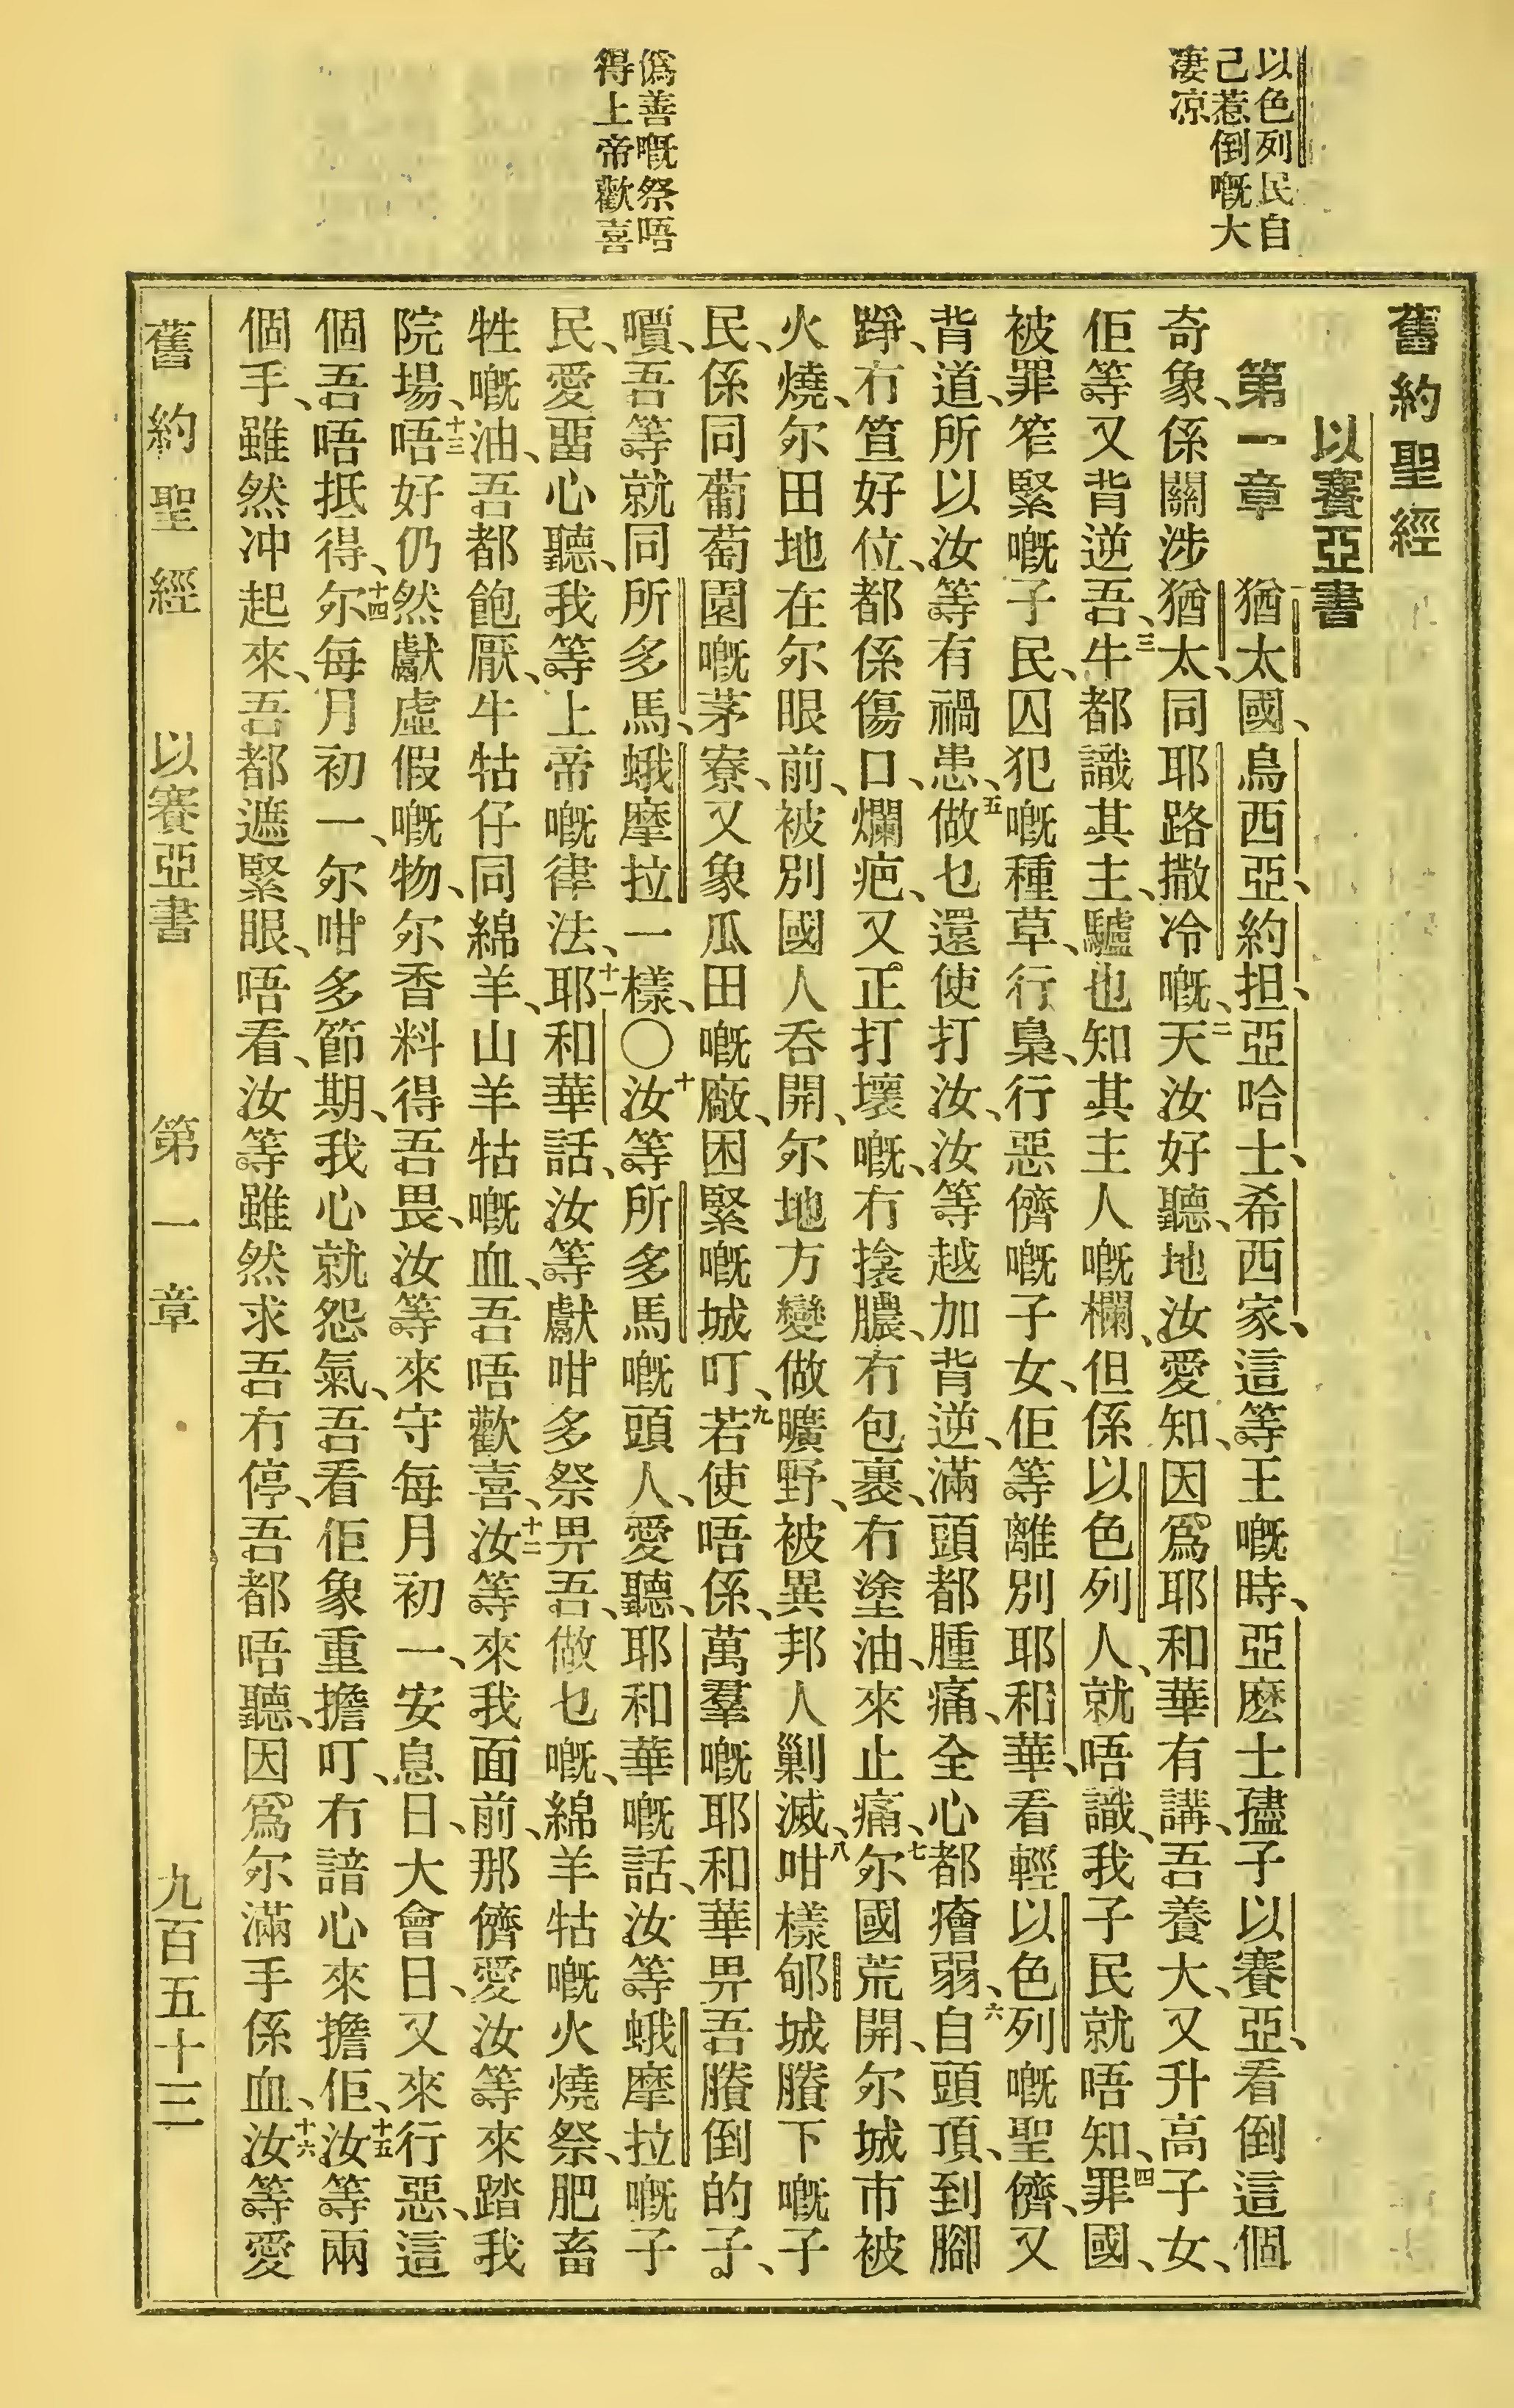 以色列民自
己惹倒嘅大
淒凉
僞善嘅祭唔
得上帝歡喜
舊約聖經
以賽亞書
第一章　猶太國、烏西亞、約担、亞哈士、希西家、這等王嘅時、亞麽士孻子以賽亞、看倒這個
奇象、係關涉猶太、同耶路撒冷嘅、二天汝好聽、地汝愛知、因爲耶和華有講、吾養大、又升高子女、
佢等又背逆吾、三牛都識其主、驢也知其主人嘅欄、但係以色列人、就唔識、我子民就唔知、四罪國、
被罪笮緊嘅子民、囚犯嘅種草、行梟、行惡儕嘅子女、佢等離別耶和華、看輕以色列嘅聖儕、又
背道、所以汝等有禍患、五做乜還使打汝、汝等越加背逆、滿頭都腫痛、全心都癐弱、六自頭頂、到腳
踭、冇笪好位、都係傷口、爛疤、又正打壞嘅、冇㨢膿、冇包裹、冇塗油、來止痛、七尔國荒開、尔城市被
火燒、尔田地在尔眼前、被別國人呑開、尔地方變做曠野、被異邦人剿滅、八咁樣郇城賸下嘅子
民、係同葡萄園嘅茅寮、又象瓜田嘅廠、困緊嘅城叮、九若使唔係、萬羣嘅耶和華畀吾賸倒的子、
嘪、吾等就同所多馬、蛾摩拉一樣、〇十汝等所多馬嘅頭人、愛聽、耶和華嘅話、汝等蛾摩拉嘅子
民、愛畱心聽、我等上帝嘅律法、十一耶和華話、汝等獻咁多祭畀吾、做乜嘅、綿羊牯嘅火燒祭、肥畜
牲嘅油、吾都飽厭、牛牯仔同綿羊、山羊牯嘅血、吾唔歡喜、十二汝等來我面前、那儕愛汝等來踏我
院場、十三唔好仍然獻虛假嘅物、尔香料得吾畏、汝等來守每月初一、安息日、大會日、又來行惡、這
個吾唔抵得、十四尔每月初一、尔咁多節期、我心就怨氣、吾看佢象重擔叮、冇諳心來擔佢、十五汝等兩
個手、雖然冲起來、吾都遮緊眼、唔看、汝等雖然求吾冇停、吾都唔聽、因爲尔滿手係血、十六汝等愛
舊約聖經　以賽亞書　第一章　九百五十三